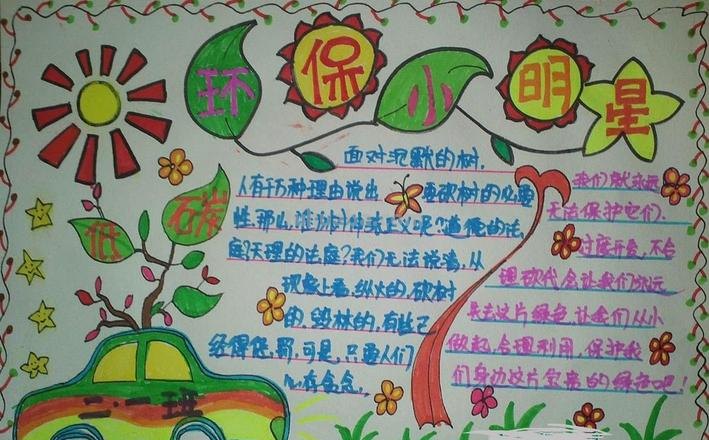 环保小明星
低
石炭
面对沉默的树,
人有千万种理由说出
要砍树的必要
性,那么,谁为树伸张正义呢?道德的法
庭?天理的法庭?我们无法说清,从
现象上看,纵火的,砍树
的,毁林的,有些已
经得惩罚,可是,只要人们
心存贪念,
我们就永远
无法保护它们.
过度开采,不合
理砍伐,会让我们永远
失去这片绿色,让我们从小
做起,合理利用,保护我
们身边这片宝贵的绿色吧!
二·一班